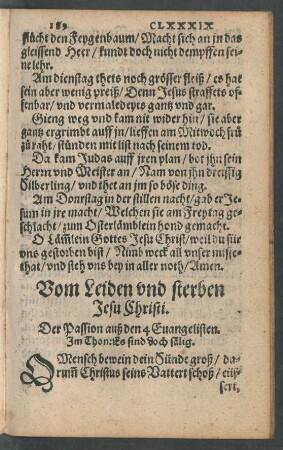 189 CLXXXIX
flucht den Feygenbaum/ Macht sich an jn das
gleissend Heer/ kundt doch nicht dempffen sei-
ne lehr.
Am dienstag thets noch grösser fleiß/ es hat
sein aber wenig preiß/ Denn Jesus straffets of-
fenbar/ vnd vermaledeyts gantz vnd gar.
Gieng weg vnd kam nit wider hin/ sie aber
gantz ergrimbt auff jn/ lieffen am Mitwoch frü
zů raht/ stůnden mit list nach seinem tod.
Da kam Judas auff jren plan/ bot jhn sein
Herrn vnd Meister an/ Nam von jhn dreissig
Silberling/ vnd thet an jm so böse ding.
Am Donrstag in der stillen nacht/ gab er Je-
sum in jre macht/ Welchen sie am Freytag ge-
schlacht/ zum Osterlämblein hond gemacht.
O Läm̃lein Gottes Jesu Christ/ weil du für
vns gestorben bist/ Nimb weck all vnser misse-
that/ und steh vns bey in aller noth/ Amen.
Vom Leiden vnd sterben
Jesu Christi.
Der Passion auß den 4 Euangelisten.
Im Thon: Es sind doch sälig.
O Mensch bewein dein Sünde groß/ da-
rum̃ Christus seins Vatters schoß/ eüs-
sert,